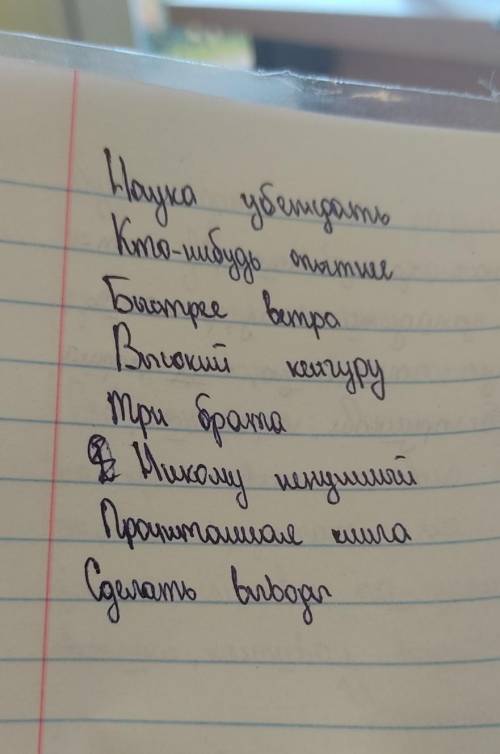 Наука убеждать
Кто-нибудь опытнее
Быстрее ветра
Высокий кенгуру
Три брата
Никому ненужный
Прочитанная книга
Сделать выводы